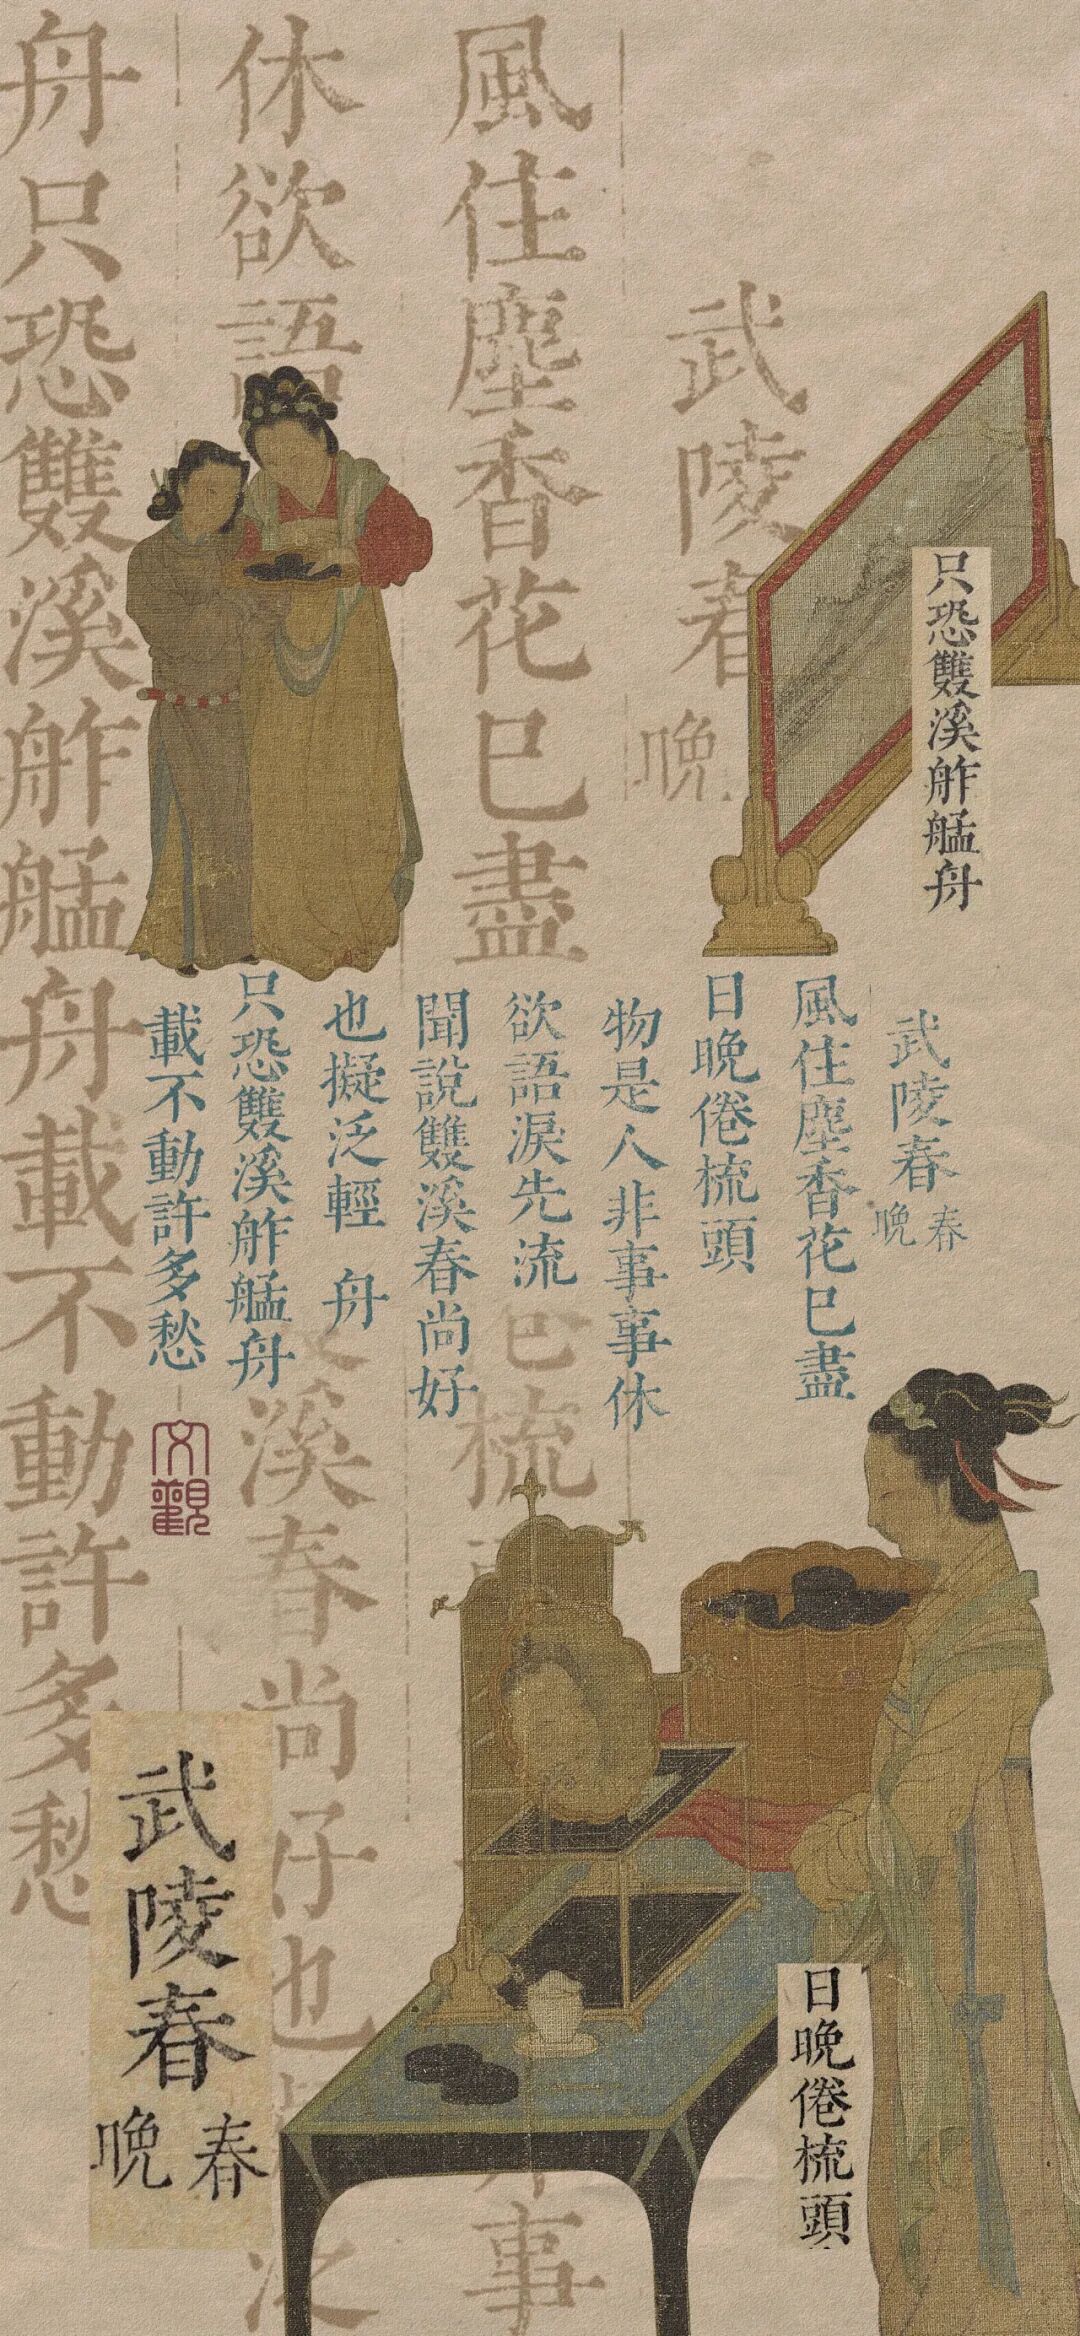 武陵春
晚
風住塵香花已盡
梳
事
休欲語
溪春尚好也
泛
舟只恐雙溪舴艋舟載不動許多愁
只恐雙溪舴艋舟
武陵春
春晚
風住塵香花已盡
日晚倦梳頭
物是人非事事休
欲語淚先流
聞說雙溪春尚好
也擬泛輕舟
只恐雙溪舴艋舟
載不動許多愁
文觀
武陵春
春晚
日晚倦梳頭